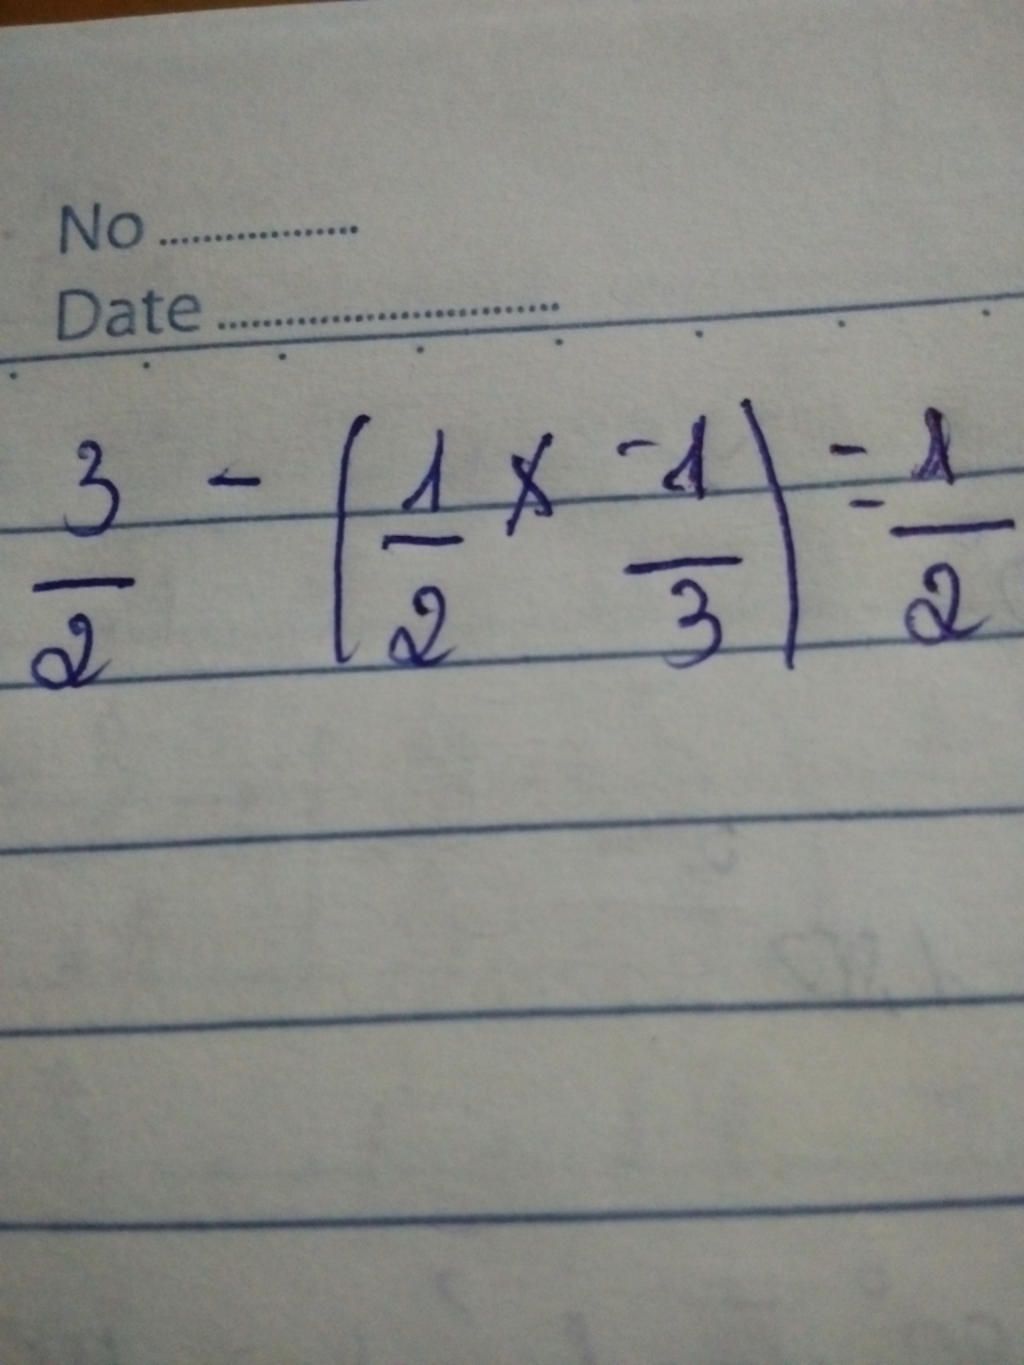 No ..................
Date ..............................
3/2 - (1/2 x -1/3) = 1/2